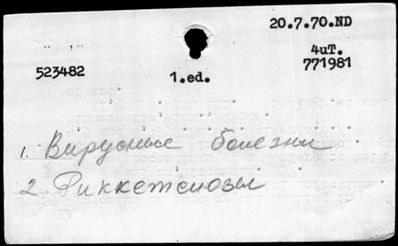 20.7.70.ND
4uT.
523482 1.ed. 771981
1. Вирусные болезни
2. Риккетсиозы